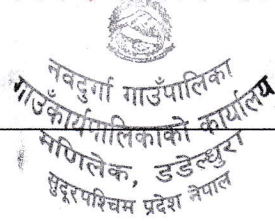 नवदुर्गा गाउँपालिका
गाउँकार्यपालिकाको कार्यालय
मणिलेक, डडेल्धुरा
सुदूरपश्चिम प्रदेश नेपाल